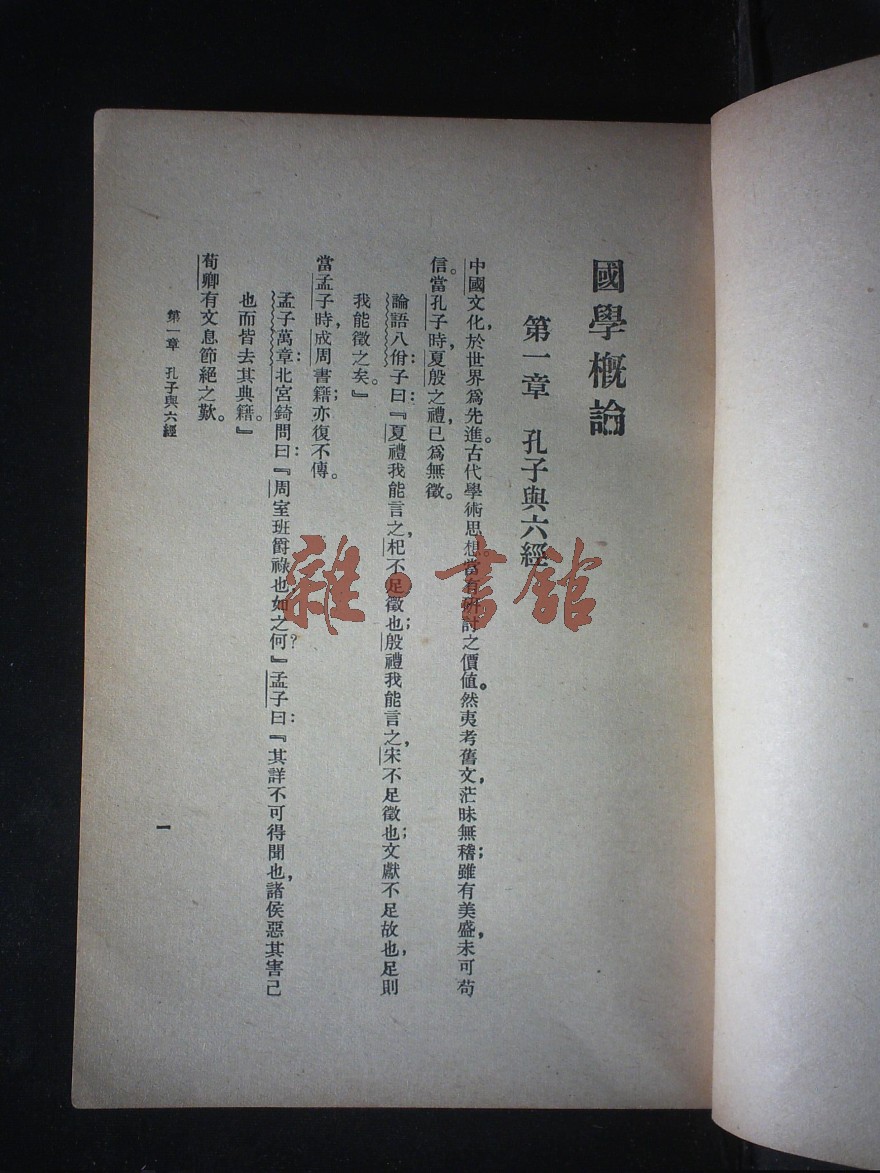 國學概論
第一章　孔子與六經
中國文化，於世界爲先進。古代學術思想，當有研討之價值。然夷考舊文，茫昧無稽；雖有美盛，未可苟
信。當孔子時，夏殷之禮，已爲無徵。
論語八佾：子曰：『夏禮我能言之，杞不足徵也；殷禮我能言之，宋不足徵也；文獻不足故也，足則
我能徵之矣。』
當孟子時，成周書籍，亦復不傳。
孟子萬章：北宮錡問曰：『周室班爵祿也，如之何？』孟子曰：『其詳不可得聞也，諸侯惡其害己
也而皆去其典籍。』
荀卿有文息節絕之歎。
第一章　孔子與六經
一
雜·書館